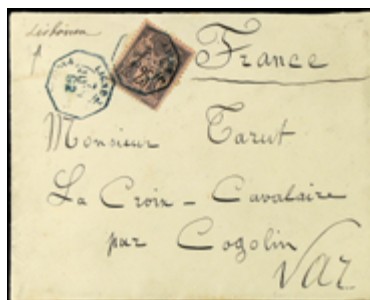 France
Monsieur Tarut
La Croix - Cavalaire
par Cogolin
Var